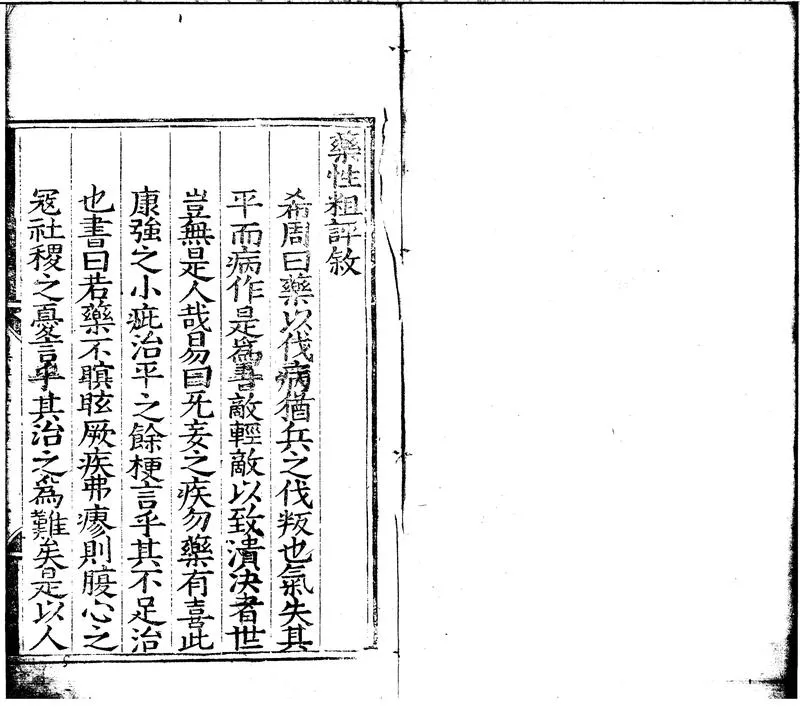 藥性粗評敘
希周曰藥以伐病猶兵之伐叛也氣失其
平而病作是為善敵輕敵以致潰决者世
豈無是人哉易曰旡妄之疾勿藥有喜此
康強之小疵治平之餘梗言乎其不足治
也書曰若藥不瞑眩厥疾弗瘳則腹心之
冦社稷之憂言乎其治之為難矣是以人